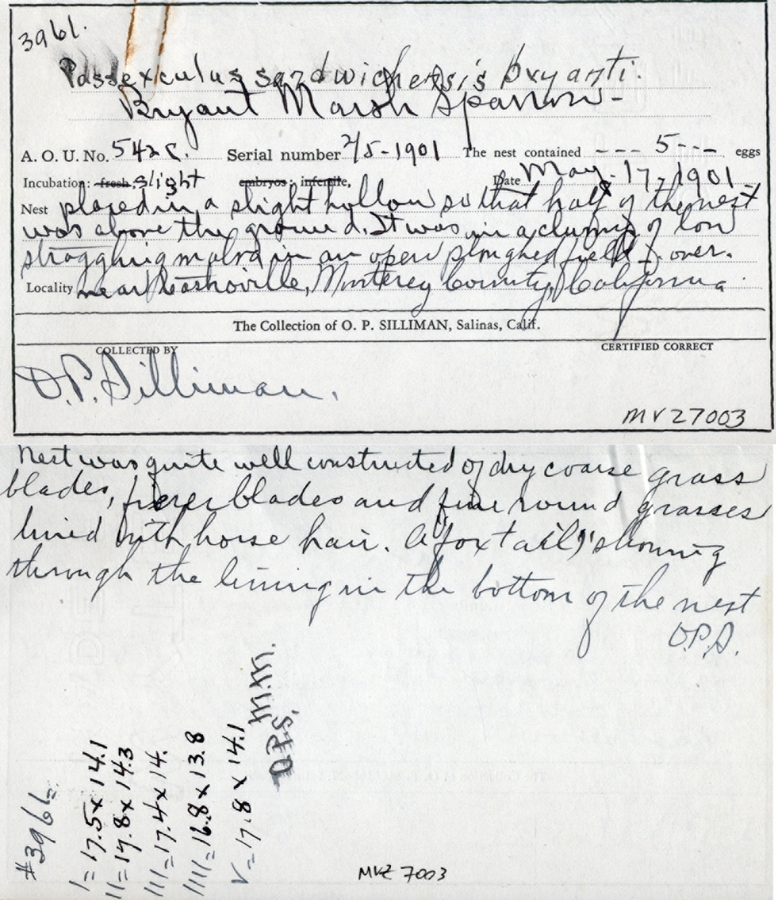 3961.
Passerculus sandwichensis bryanti.
Bryant Marsh Sparrow -
A. O. U. No. 542c. Serial number 2/5-1901 The nest contained --- 5 --- eggs
Incubation: fresh, slight embryos; infertile, Date May - 17 - 1901
Nest placed in a slight hollow so that half of the nest
was above the ground. It was in a clump of low
straggling malva in an open ploughed field over.
Locality near Castroville, Monterey County, California.
The Collection of O. P. SILLIMAN, Salinas, Calif.
COLLECTED BY CERTIFIED CORRECT
O.P. Silliman.
MVZ7003
Nest was quite well constructed of dry coarse grass
blades, finer blades and fine round grasses
lined with horse hair. A "foxtail" showing
through the lining in the bottom of the nest
O.P.S.
#3961=
I = 17.5 x 14.1
II = 17.8 x 14.3
III = 17.4 x 14.
IIII = 16.8 x 13.8
V = 17.8 x 14.1
M.M.
MVZ 7003